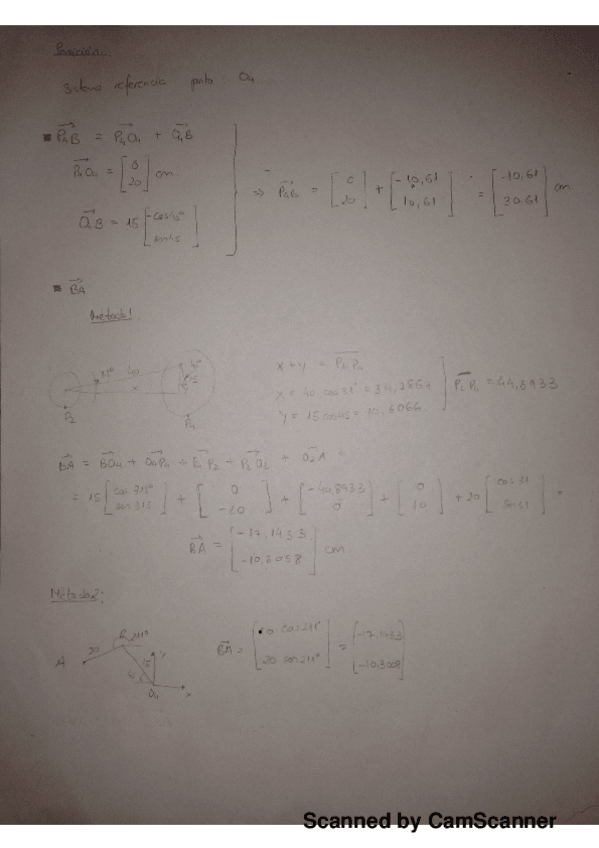 Posición:
Sistema referencia punto O4
■ P4B = P4O4 + O4B
P4O4 = [0 20] cm
O4B = 15 [-cos45° sen45]
⇒ P4B = [0 20] + [-10,61 10,61] = [-10,61 30,61] cm
■ BA
Método1.
31° 40 x
P2 P4
x + y = P2P4
x = 40 · cos31° =
y = 15 cos45 = 10,6066
P2P4 = 44,8933
BA = BO4 + O4P4 + P4P2 + P2O2 + O2A
= 15 [cos 315° sen 315] + [0 -20] + [-44,8933 0] + [0 10] + 20 [cos 31 sen 31]
BA = [-17,1433 -10,3058] cm
Método2:
A 20 B 211° 15 y
O4 x
BA = [20 cos211° 20 sen 211°] = [-17,1433 -10,3008]
Scanned by CamScanner